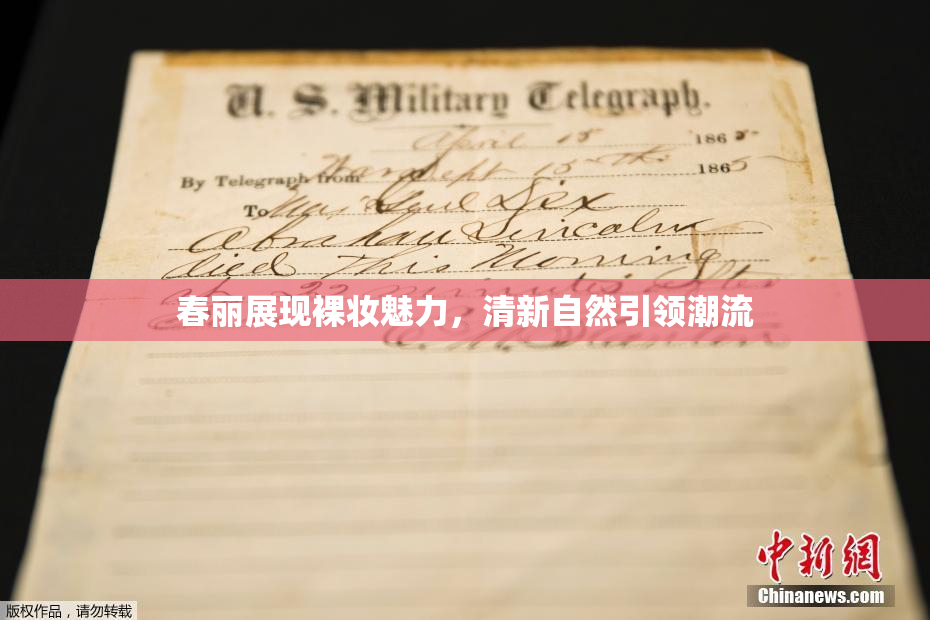 U. S. Military Telegraph.
April 15 1865
By Telegraph from War Dept 15th 1865
To Maj Genl Dix
Abraham Lincoln
died This Morning
at 22 minutes after
春丽展现裸妆魅力，清新自然引领潮流
E. M. Stanton
中新网
Chinanews.com
版权作品，请勿转载